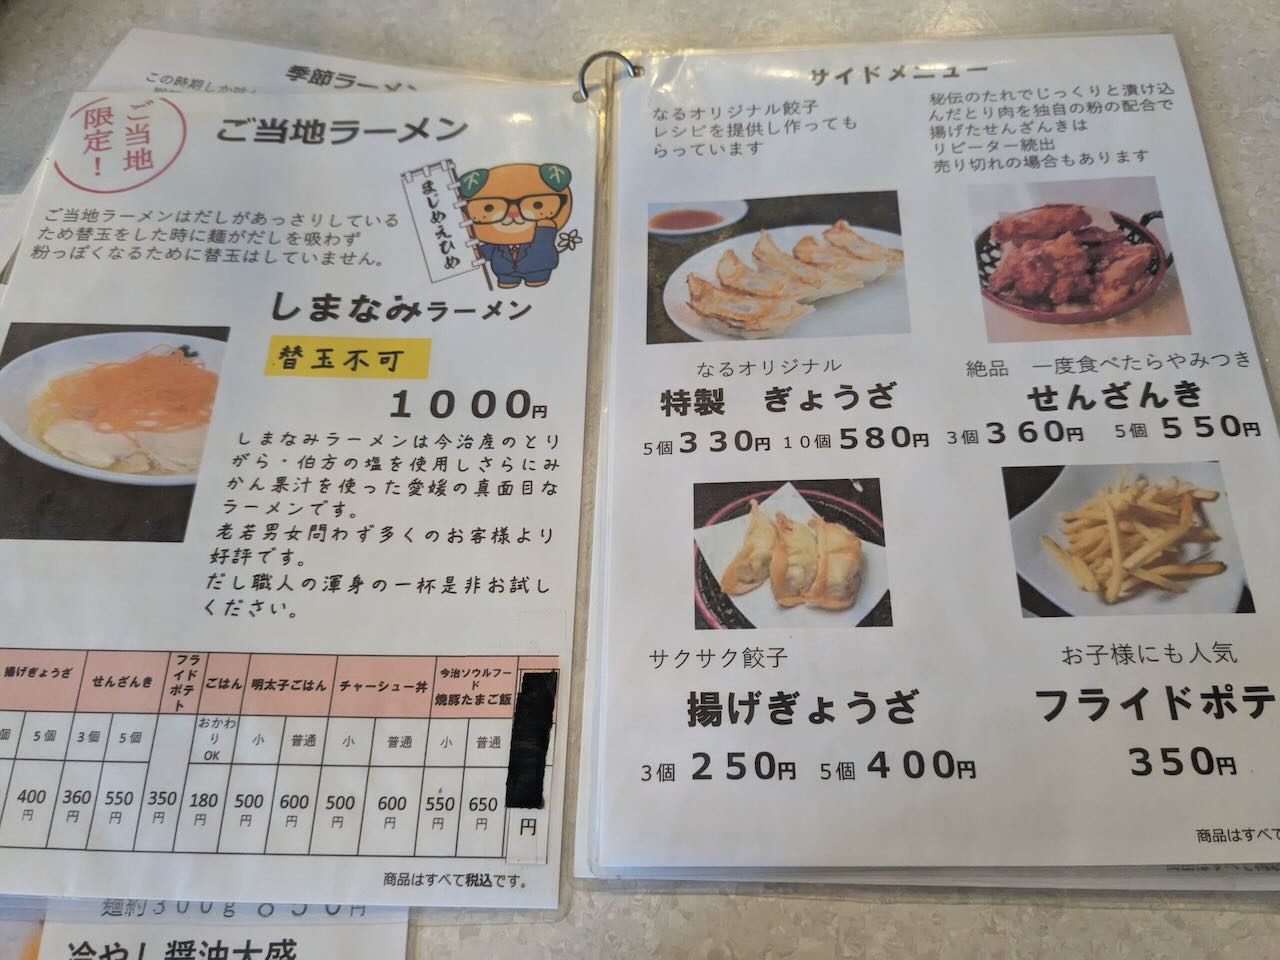 季節ラーメン
ご当地
限定！
ご当地ラーメン
まじめえひめ
ご当地ラーメンはだしがあっさりしている
ため替玉をした時に麺がだしを吸わず
粉っぽくなるために替玉はしていません。
しまなみラーメン
替玉不可
１０００円
しまなみラーメンは今治産のとり
がら・伯方の塩を使用しさらにみ
かん果汁を使った愛媛の真面目な
ラーメンです。
老若男女問わず多くのお客様より
好評です。
だし職人の渾身の一杯是非お試し
ください。
揚げぎょうざ せんざんき フライドポテト ごはん 明太子ごはん チャーシュー丼 今治ソウルフード 焼豚たまご飯
個 5個 3個 5個 おかわりOK 小 普通 小 普通 小 普通
400円 360円 550円 350円 180円 500円 600円 500円 600円 550円 650円 円
商品はすべて税込です。
麺約３００g ８５０円
冷やし醤油大盛
サイドメニュー
なるオリジナル餃子
レシピを提供し作っても
らっています
秘伝のたれでじっくりと漬け込
んだとり肉を独自の粉の配合で
揚げたせんざんきは
リピーター続出
売り切れの場合もあります
なるオリジナル
特製　ぎょうざ
5個３３０円 10個５８０円
絶品　一度食べたらやみつき
せんざんき
3個３６０円 5個５５０円
サクサク餃子
揚げぎょうざ
3個２５０円 5個４００円
お子様にも人気
フライドポテ
３５０円
商品はすべて